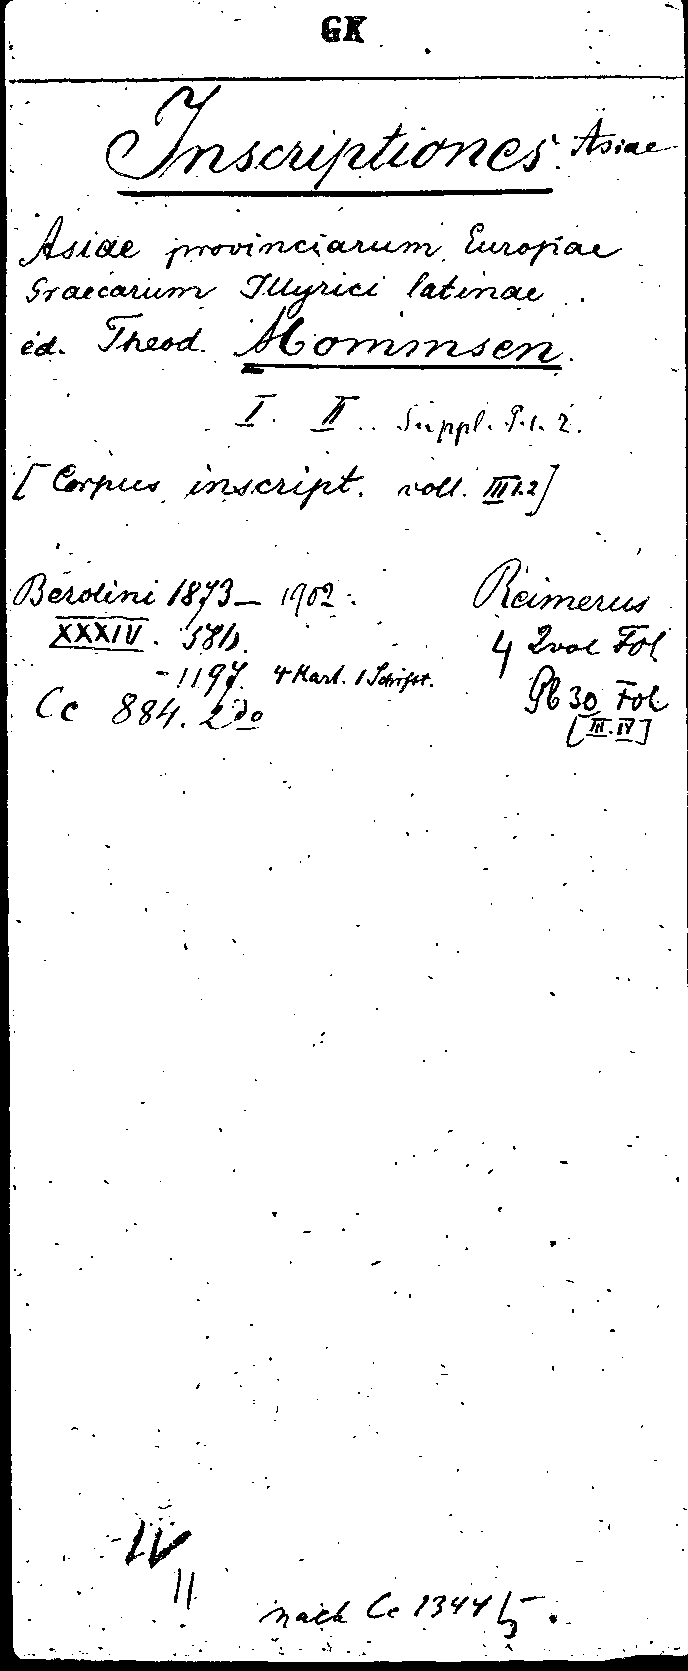 GK
Inscriptiones. Asiae
Asiae provinciarum Europiae
Graecarum Illyrici latinae
ed. Theod. Mommsen.
I. II. Suppl. P. 1. 2.
[Corpus inscript. voll. III 1.2]
Berolini 1873 – 1902. Reimerus
XXXIV. 581). 4 2 vol Fol
- 1197. 4 Kart. 1 Schrift. Gb 30 Fol
Cc 884. 2do [III. IV]
IV
II
nach Cc 1344